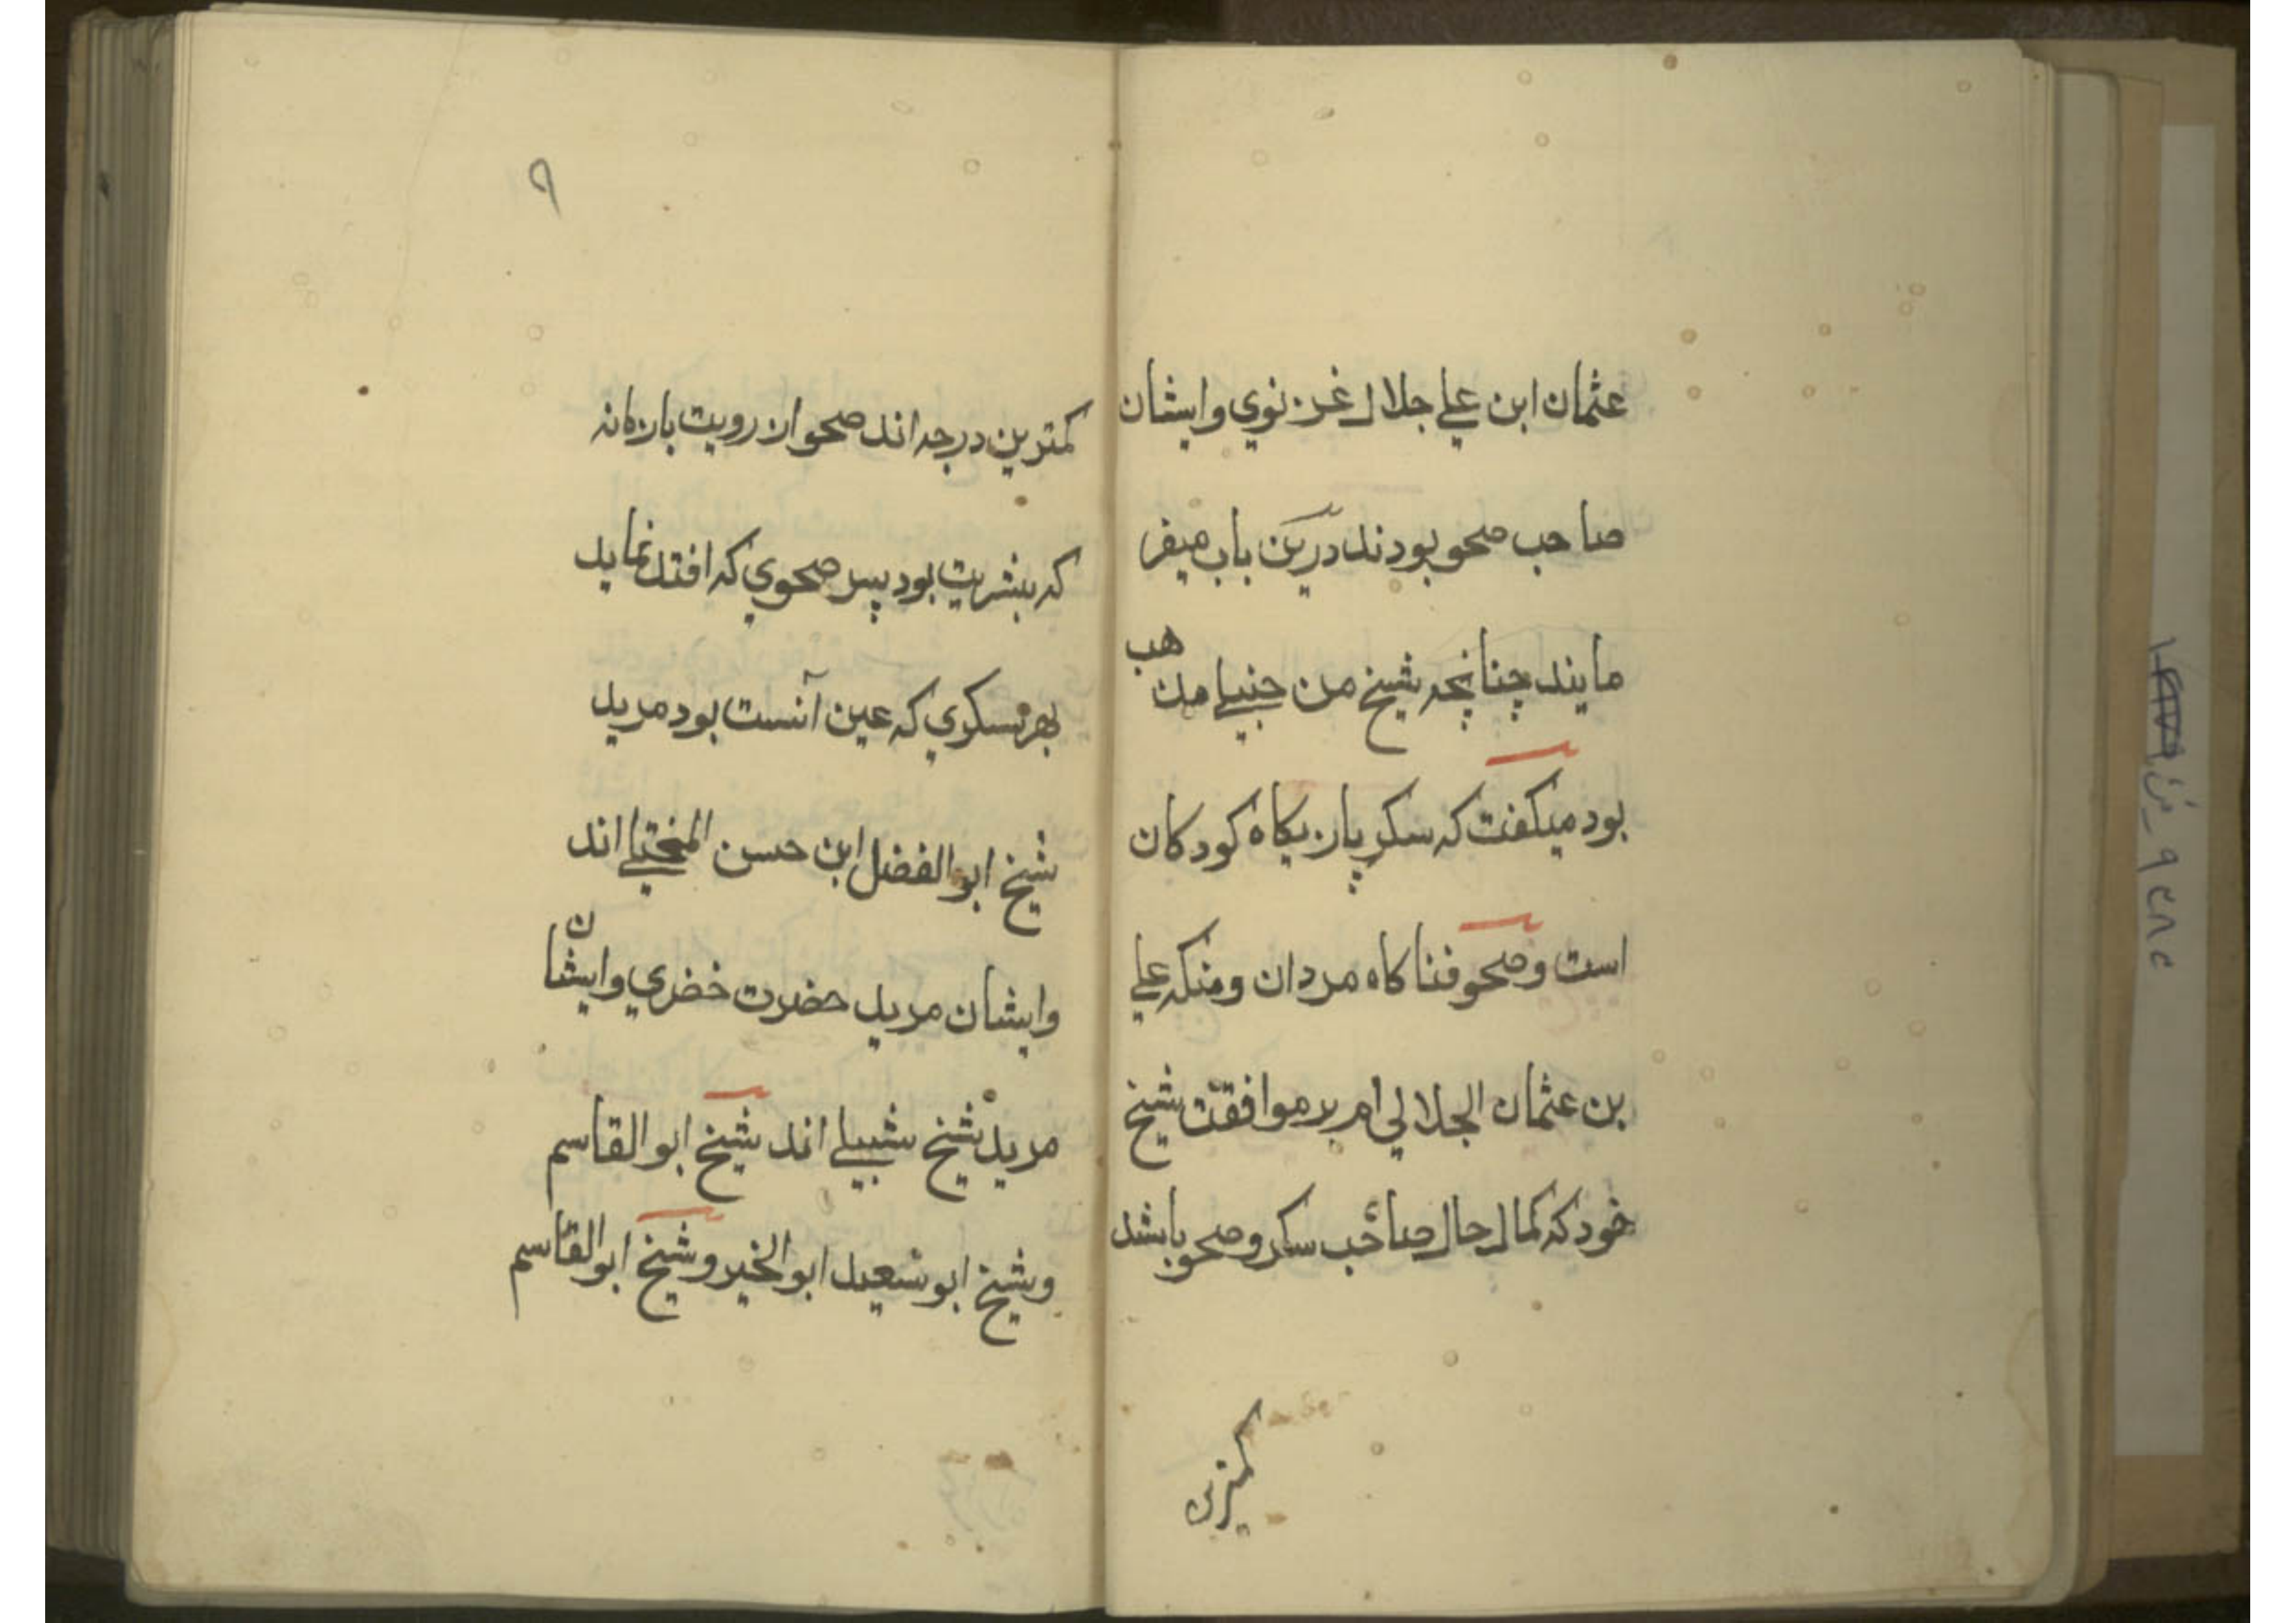 عثمان ابن علي جلال غزنوي وايشان
صاحب صحو بودند درين باب ميفر
مايند چنانچه شيخ من جنيلي مذهب
بود ميكفت كه سكر بازيكاه كودكان
است وصحو فناكاه مردان ومنكه علي
بن عثمان الجلالي ام بر موافقت شيخ
خود كه كمال حال صاحب سكر وصحو باشد
كمترين
٩
كمترين درجه اند صحو از رويت بازمانه
كه ببشريت بود پس صحوي كه افتد نمايد
بهر سكري كه عين آنست بود مريد
شيخ ابو الفضل ابن حسن المختلي اند
وايشان مريد حضرت خضري وايشان
مريد شيخ شبيلي اند شيخ ابو القاسم
وشيخ ابو سعيد ابو الخير وشيخ ابو القاسم